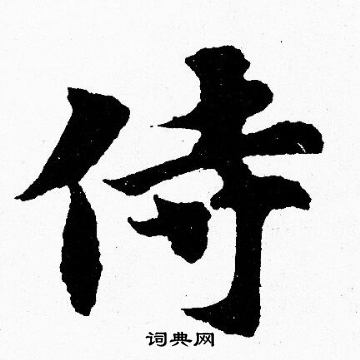 侍
词典网